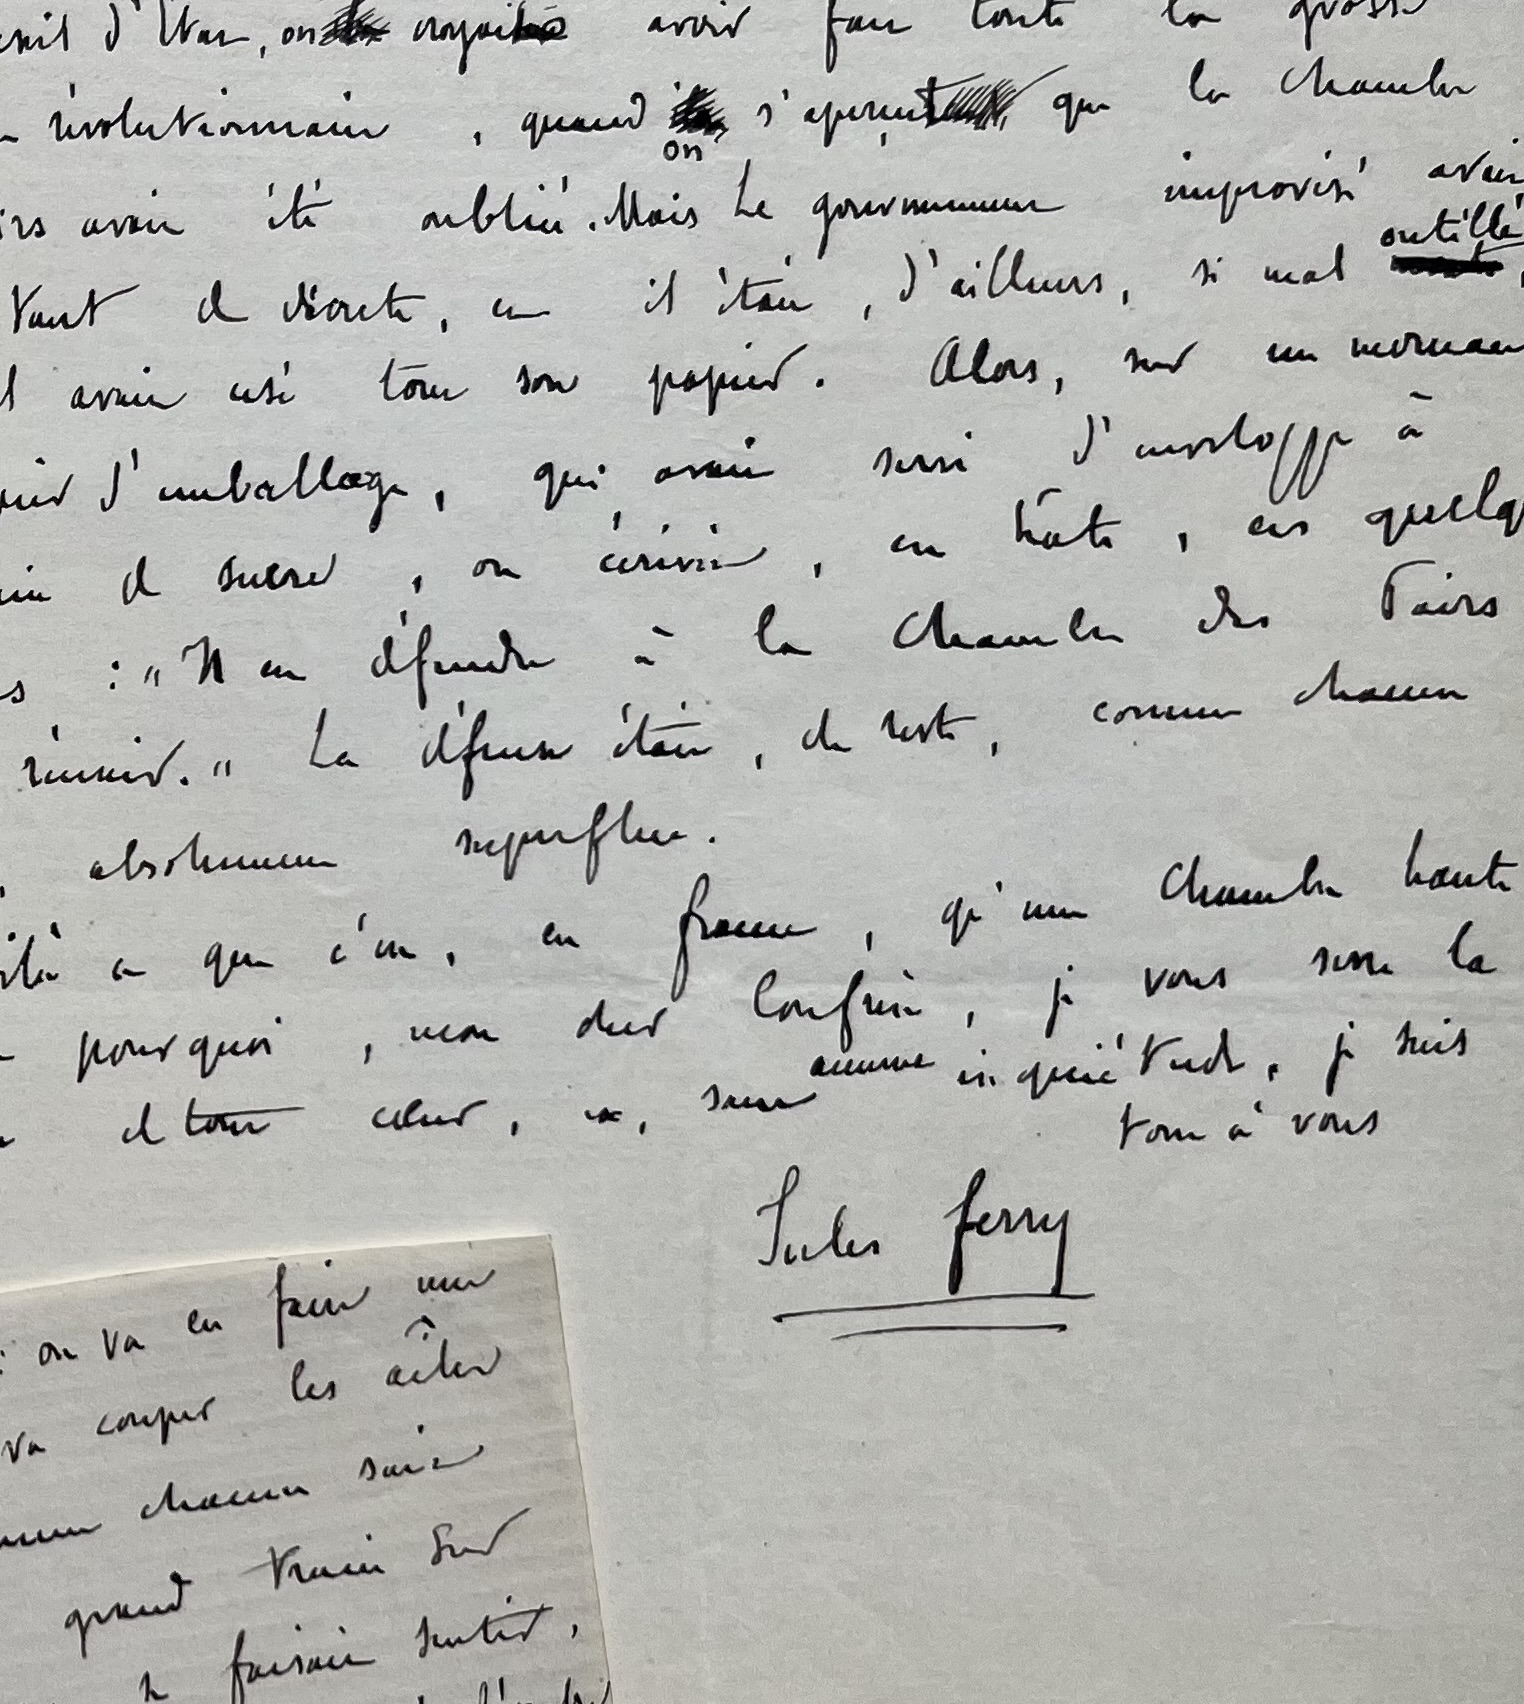 d'Etat, on croyait avoir fait toute la grosse
révolutionnaire, quand on s'aperçut que la Chambre
avait été oubliée. Mais le gouvernement improvisé avait
tant de décrets, et il était, d'ailleurs, si mal outillé,
avait usé tout son papier. Alors, sur un morceau
d'emballage, qui avait servi d'enveloppe à
de sucre, on écrivit, en hâte, ces
: "Il est défendu à la Chambre des Pairs
réunir." La défense était, du reste, comme chacun
absolument superflue.
ce que c'est, en France, qu'une Chambre haute
pourquoi, mon cher Confrère, je vous serre la
de tout cœur, et, sans aucune inquiétude, je suis
tout à vous
Jules Ferry
on va en faire une
va couper les aîles
chacun sait
grand train sur
faisait sentir,